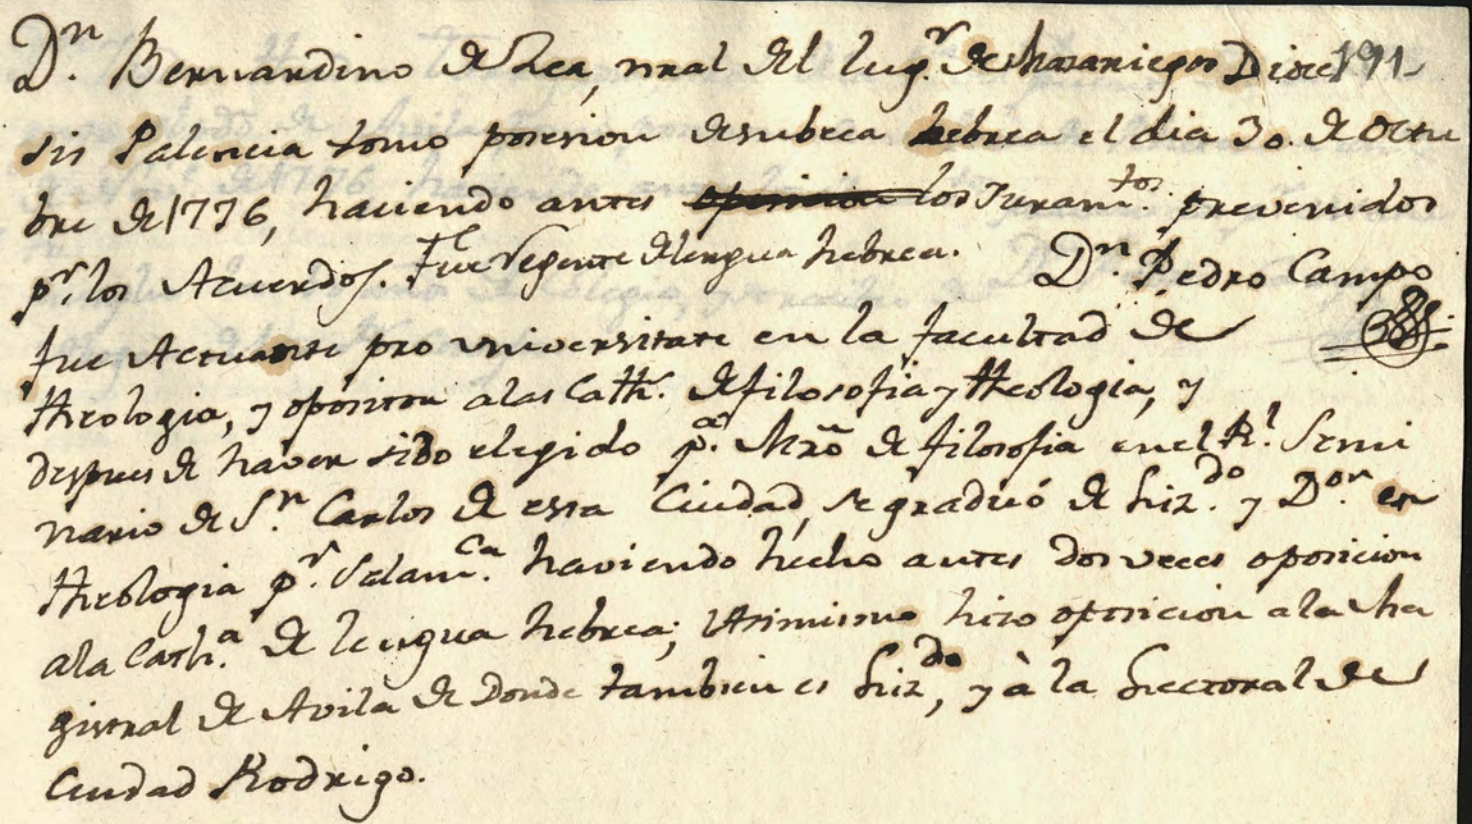 Dn. Bernardino de Zea, nral del lugr. de Mazariegos Dioce 191
sis Palencia tomo posesion desubeca hebrea el dia 30. de Octu
bre de 1776, haciendo antes oposicion los Juramtos. prevenidos
pr. los Acuerdos. Fue Regente de lengua hebrea. Dn. Pedro Campo
fue Actuante pro universitate en la facultad de
theologia, y opositor alas Cath. de filosofia y theologia, y
despues de haver sido elegido pa. Mrõ de filosofia en el Rl. Semi
nario de Sn. Carlos de essa Ciudad, se graduó de Lizdo. y Dor. en
theologia pr. Salamca. haviendo hecho antes dos veces oposicion
ala Catha. de lengua hebrea; Asimismo hizo oposicion a la Ma
gistral de Avila de donde tambien es Lizdo, y à la Lectoral de
Ciudad Rodrigo.